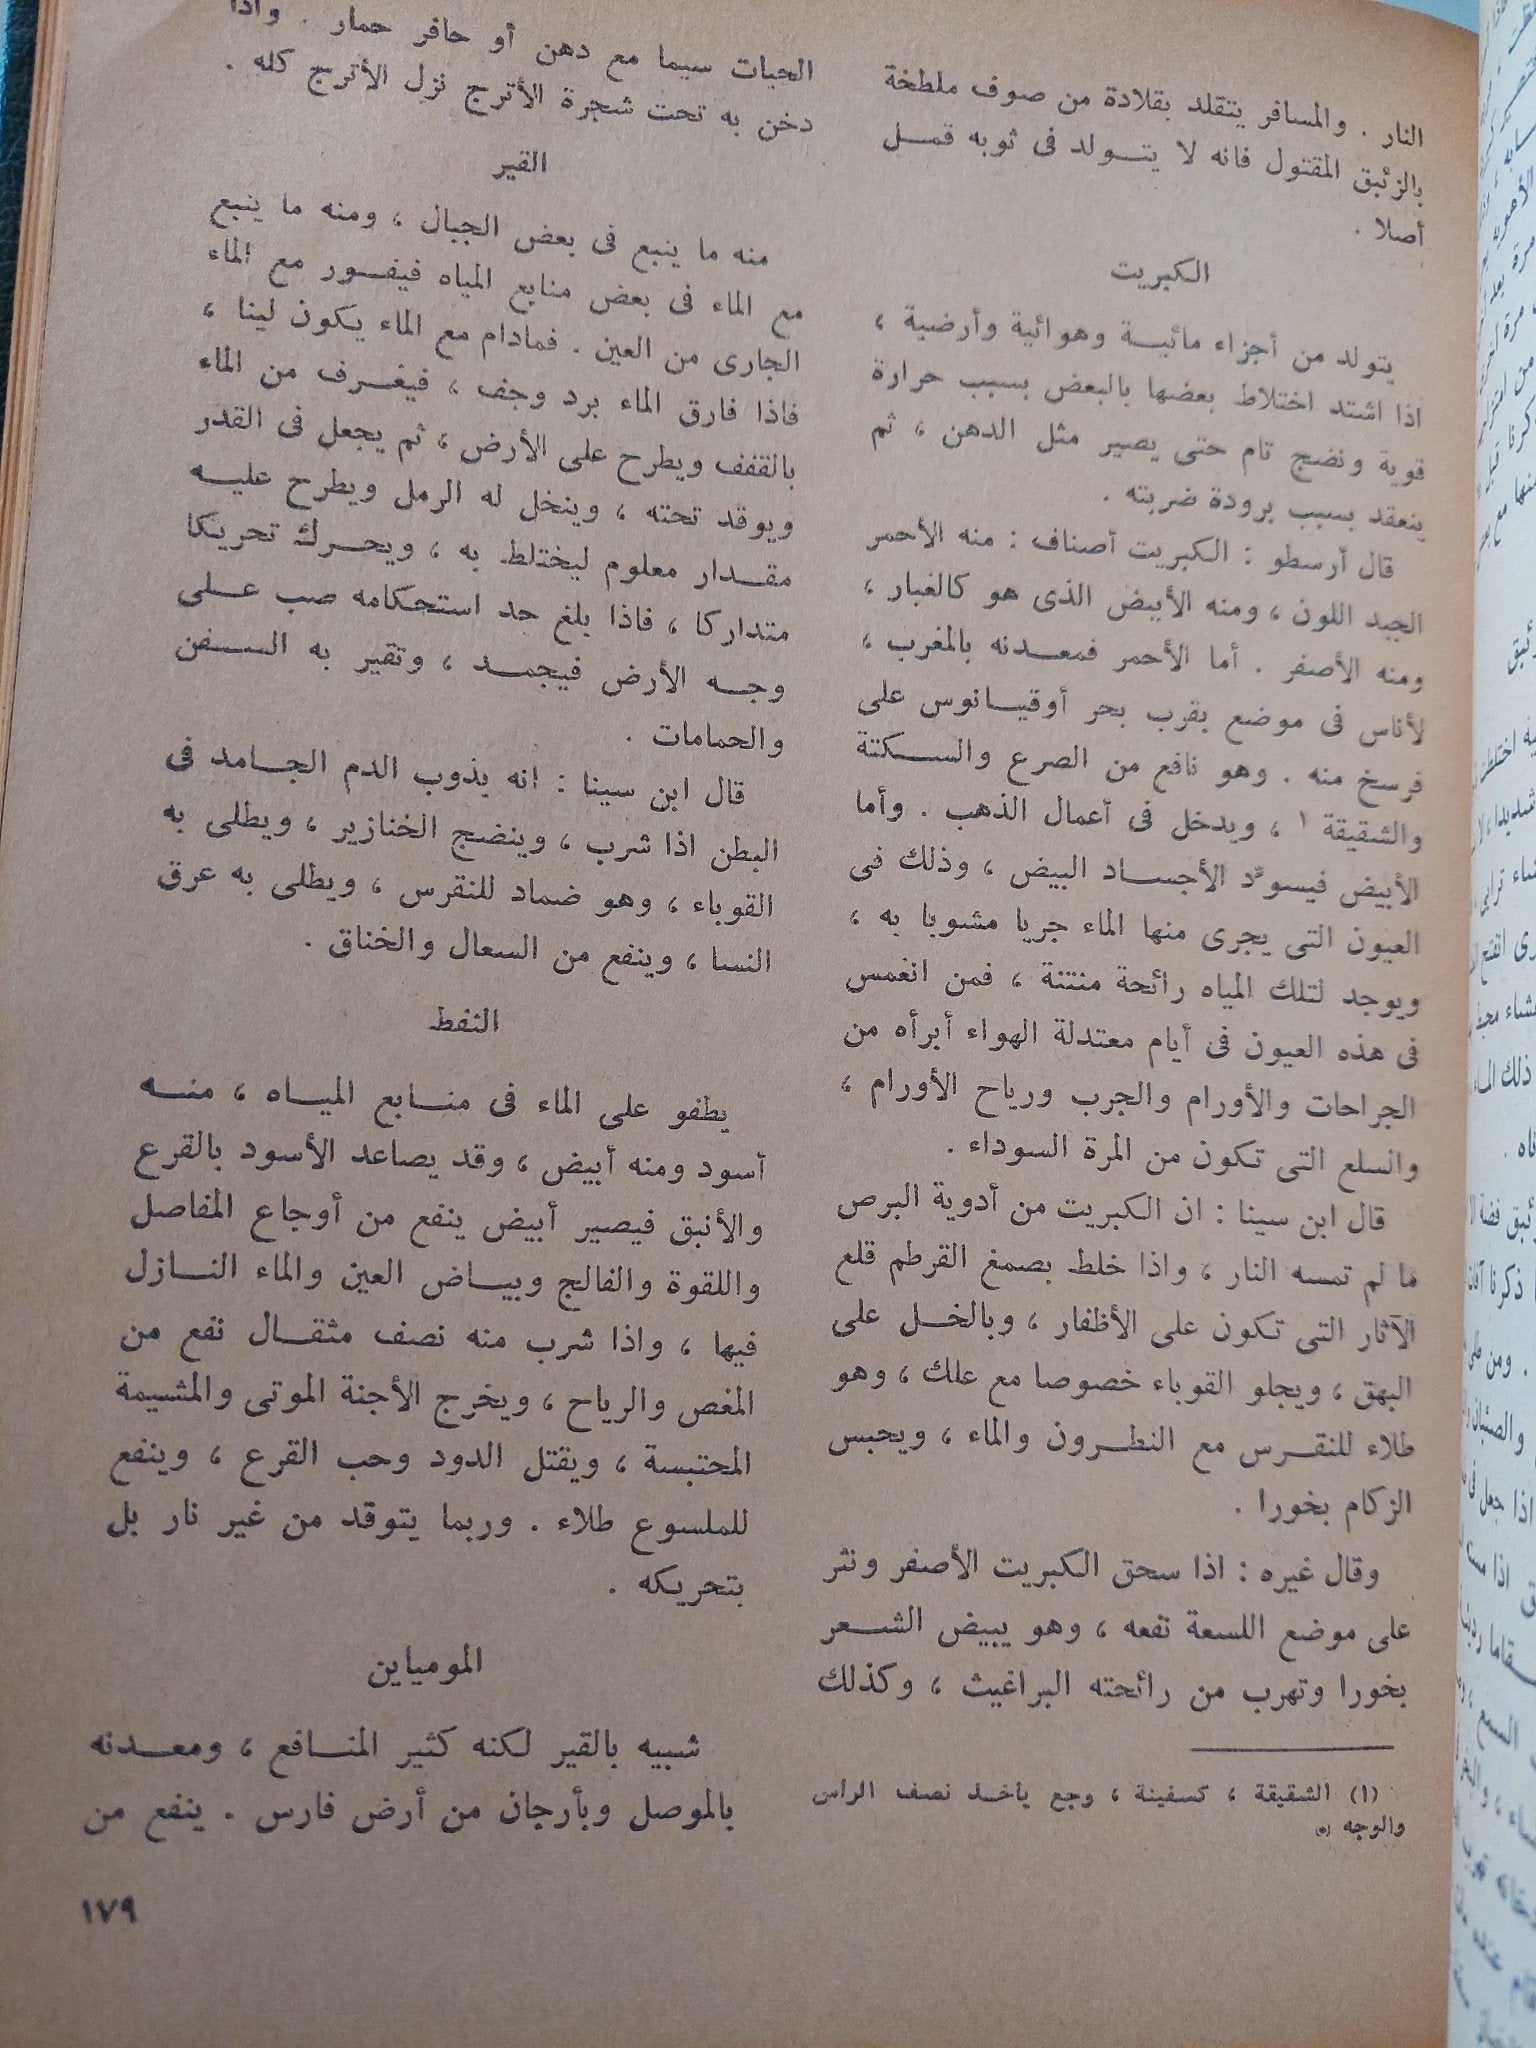 النار . والمسافر يتقلد بقلادة من صوف ملطخة
بالزئبق المقتول فانه لا يتولد فى ثوبه قمل
أصلا .
الكبريت
يتولد من أجزاء مائية وهوائية وأرضية ،
اذا اشتد اختلاط بعضها بالبعض بسبب حرارة
قوية ونضج تام حتى يصير مثل الدهن ، ثم
ينعقد بسبب برودة ضربته .
قال أرسطو : الكبريت أصناف : منه الأحمر
الجيد اللون ، ومنه الأبيض الذى هو كالغبار ،
ومنه الأصفر . أما الأحمر فمعدنه بالمغرب ،
لأناس فى موضع بقرب بحر أوقيانوس على
فرسخ منه . وهو نافع من الصرع والسكتة
والشقيقة ١ ، ويدخل فى أعمال الذهب . وأما
الأبيض فيسوّد الأجساد البيض ، وذلك فى
العيون التى يجرى منها الماء جريا مشوبا به ،
ويوجد لتلك المياه رائحة منتنة ، فمن انغمس
فى هذه العيون فى أيام معتدلة الهواء أبرأه من
الجراحات والأورام والجرب ورياح الأورام ،
والسلع التى تكون من المرة السوداء .
قال ابن سينا : ان الكبريت من أدوية البرص
ما لم تمسه النار ، واذا خلط بصمغ القرطم قلع
الآثار التى تكون على الأظفار ، وبالخل على
البهق ، ويجلو القوباء خصوصا مع علك ، وهو
طلاء للنقرس مع النطرون والماء ، ويحبس
الزكام بخورا .
وقال غيره : اذا سحق الكبريت الأصفر ونثر
على موضع اللسعة نفعه ، وهو يبيض الشعر
بخورا وتهرب من رائحته البراغيث ، وكذلك
(١) الشقيقة ، كسفينة ، وجع يأخذ نصف الراس
والوجه
الحيات سيما مع دهن أو حافر حمار . واذا
دخن به تحت شجرة الأترج نزل الأترج كله .
القير
منه ما ينبع فى بعض الجبال ، ومنه ما ينبع
مع الماء فى بعض منابع المياه فيفور مع الماء
الجارى من العين . فمادام مع الماء يكون لينا ،
فاذا فارق الماء برد وجف ، فيغرف من الماء
بالقفف ويطرح على الأرض ، ثم يجعل فى القدر
ويوقد تحته ، وينخل له الرمل ويطرح عليه
مقدار معلوم ليختلط به ، ويحرك تحريكا
متداركا ، فاذا بلغ حد استحكامه صب على
وجه الأرض فيجمد ، وتقير به السفن
والحمامات .
قال ابن سينا : انه يذوب الدم الجامد فى
البطن اذا شرب ، وينضج الخنازير ، ويطلى به
القوباء ، وهو ضماد للنقرس ، ويطلى به عرق
النسا ، وينفع من السعال والخناق .
النفط
يطفو على الماء فى منابع المياه ، منه
أسود ومنه أبيض ، وقد يصاعد الأسود بالقرع
والأنبق فيصير أبيض ينفع من أوجاع المفاصل
واللقوة والفالج وبياض العين والماء النازل
فيها ، واذا شرب منه نصف مثقال نفع من
المغص والرياح ، ويخرج الأجنة الموتى والمشيمة
المحتبسة ، ويقتل الدود وحب القرع ، وينفع
للملسوع طلاء . وربما يتوقد من غير نار بل
بتحريكه .
المومياين
شبيه بالقير لكنه كثير المنافع ، ومعدنه
بالموصل وبأرجان من أرض فارس . ينفع من
١٧٩